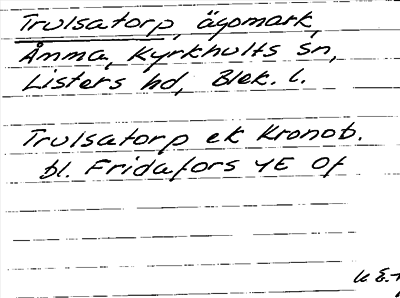 Trulsatorp, ägomark,
Åmma, Kyrkhults sn,
Listers hd, Blek. l.
Trulsatorp ek Kronob.
bl. Fridafors 4E 0f